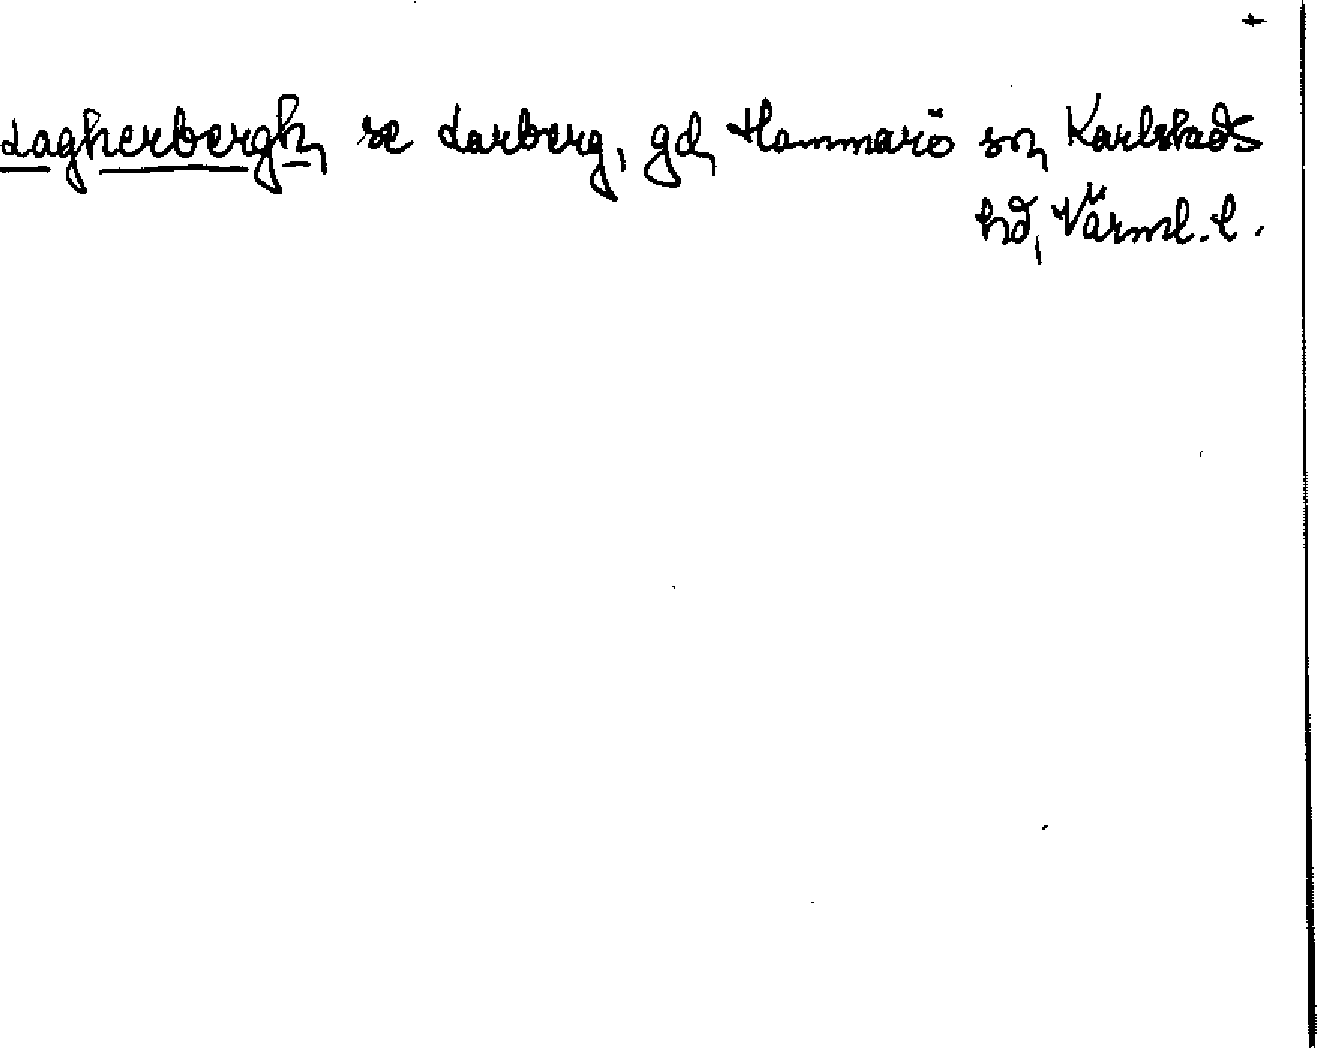 +
Lagherbergh, se Larberg, gd, Hammarö sn, Karlstads
hd, Värml. l.